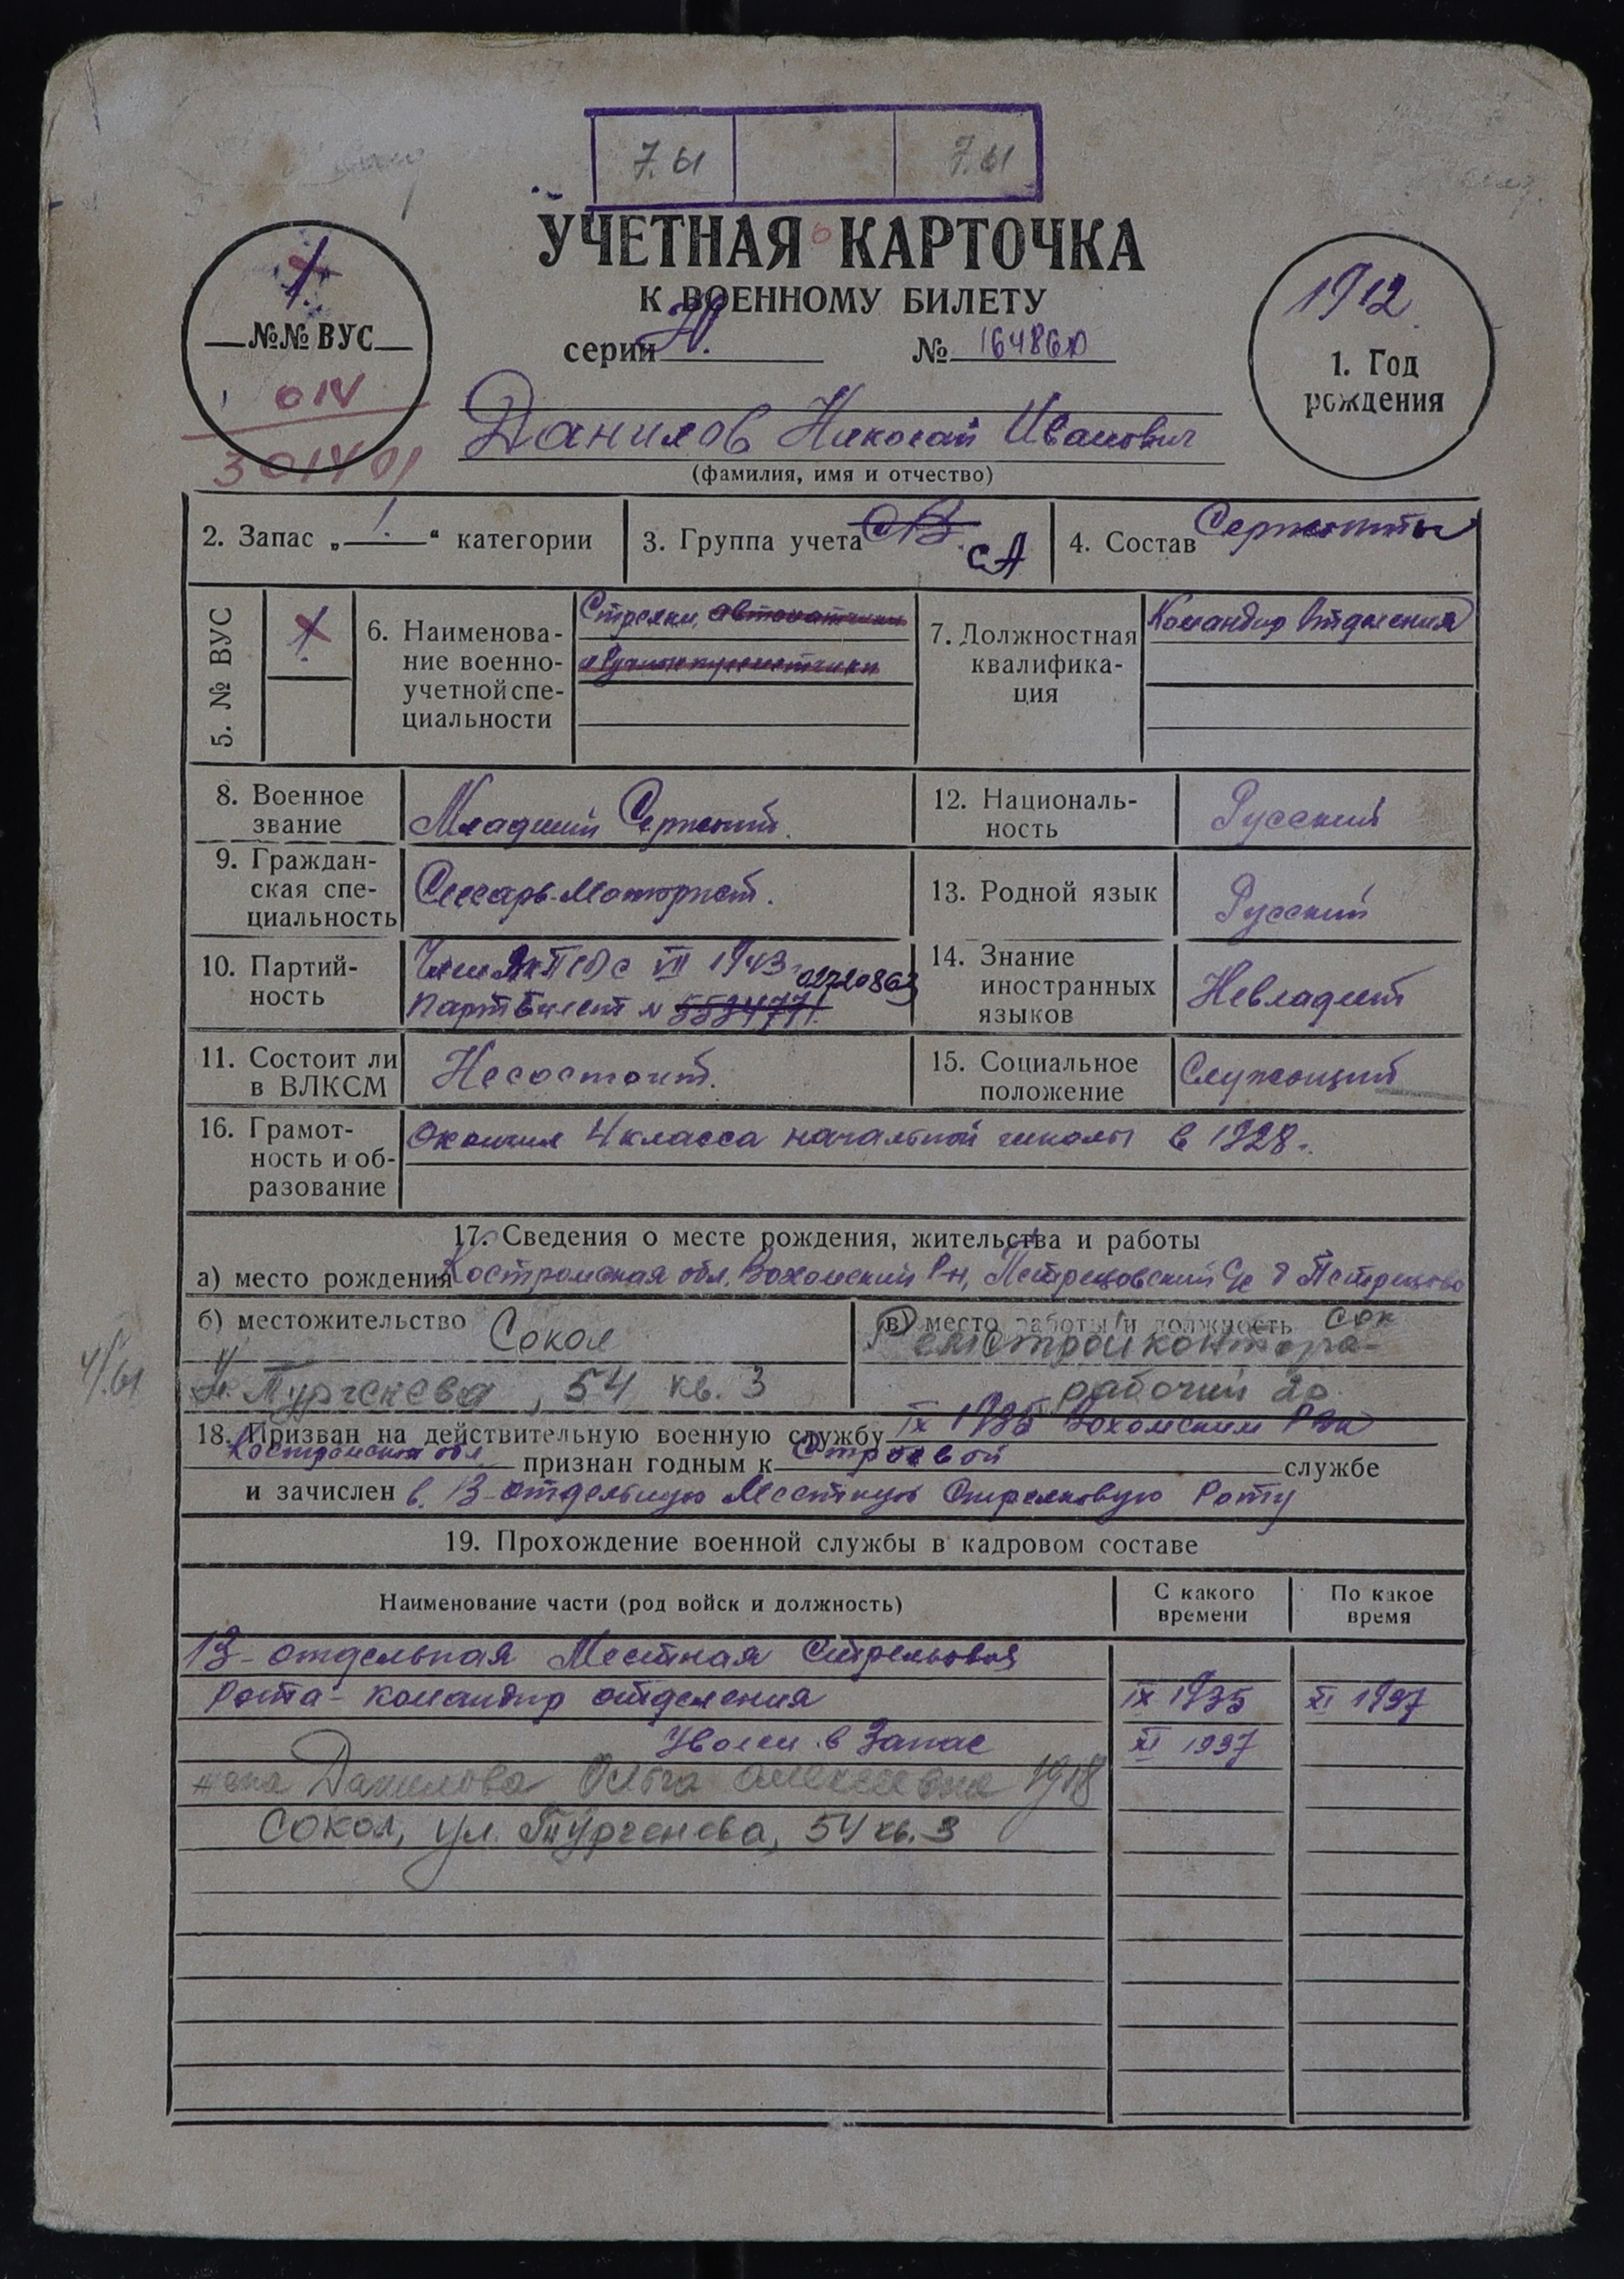 7.61 7.61
УЧЕТНАЯ КАРТОЧКА
К ВОЕННОМУ БИЛЕТУ
серии № 164860
№№ ВУС
1912
1. Год
рождения
Данилов Николай Иванович
(фамилия, имя и отчество)
301401
2. Запас „ 1. “ категории
3. Группа учета СА
4. Состав Сержанты
5. № ВУС
6. Наименова-
ние военно-
учетной спе-
циальности
Стрелки, автоматчики
и ручные пулеметчики
7. Должностная
квалифика-
ция
Командир отделения
8. Военное
звание
Младший Сержант.
9. Граждан-
ская спе-
циальность
Слесарь-моторист.
10. Партий-
ность
с VII 1943 02720863
Партбилет № 5534771.
11. Состоит ли
в ВЛКСМ
Несостоит.
12. Националь-
ность
Русский
13. Родной язык
Русский
14. Знание
иностранных
языков
Невладеет
15. Социальное
положение
Служащий
16. Грамот-
ность и об-
разование
Окончил 4 класса начальной школы в 1928.
17. Сведения о месте рождения, жительства и работы
а) место рождения Костромская обл. Вохомский Р-н, Петрецовский С/с д Петрецово
б) местожительство Сокол
Тургенева, 54 кв. 3
в) место работы и должность
рабочий
4/61
18. Призван на действительную военную службу IX 1935 Вохомским РВК
Костромская обл признан годным к Строевой службе
и зачислен в 13-отдельную Местную Стрелковую Роту
19. Прохождение военной службы в кадровом составе
Наименование части (род войск и должность)
С какого
времени
По какое
время
13-отдельная Местная Стрелковая
Рота - командир отделения IX 1935 XI 1937
Уволен в Запас XI 1937
жена Данилова Ольга Алексеевна 1918
Сокол, ул. Тургенева, 54 кв. 3